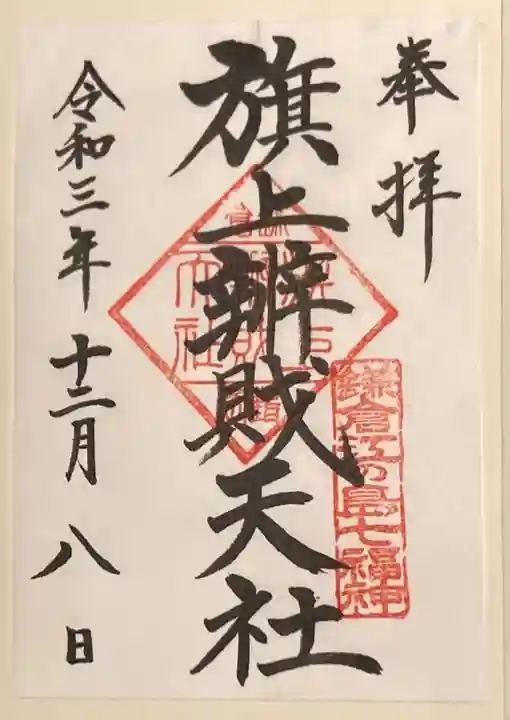 奉拝
旗上辨財天社
鎌倉江の島七福神
令和三年十二月八日